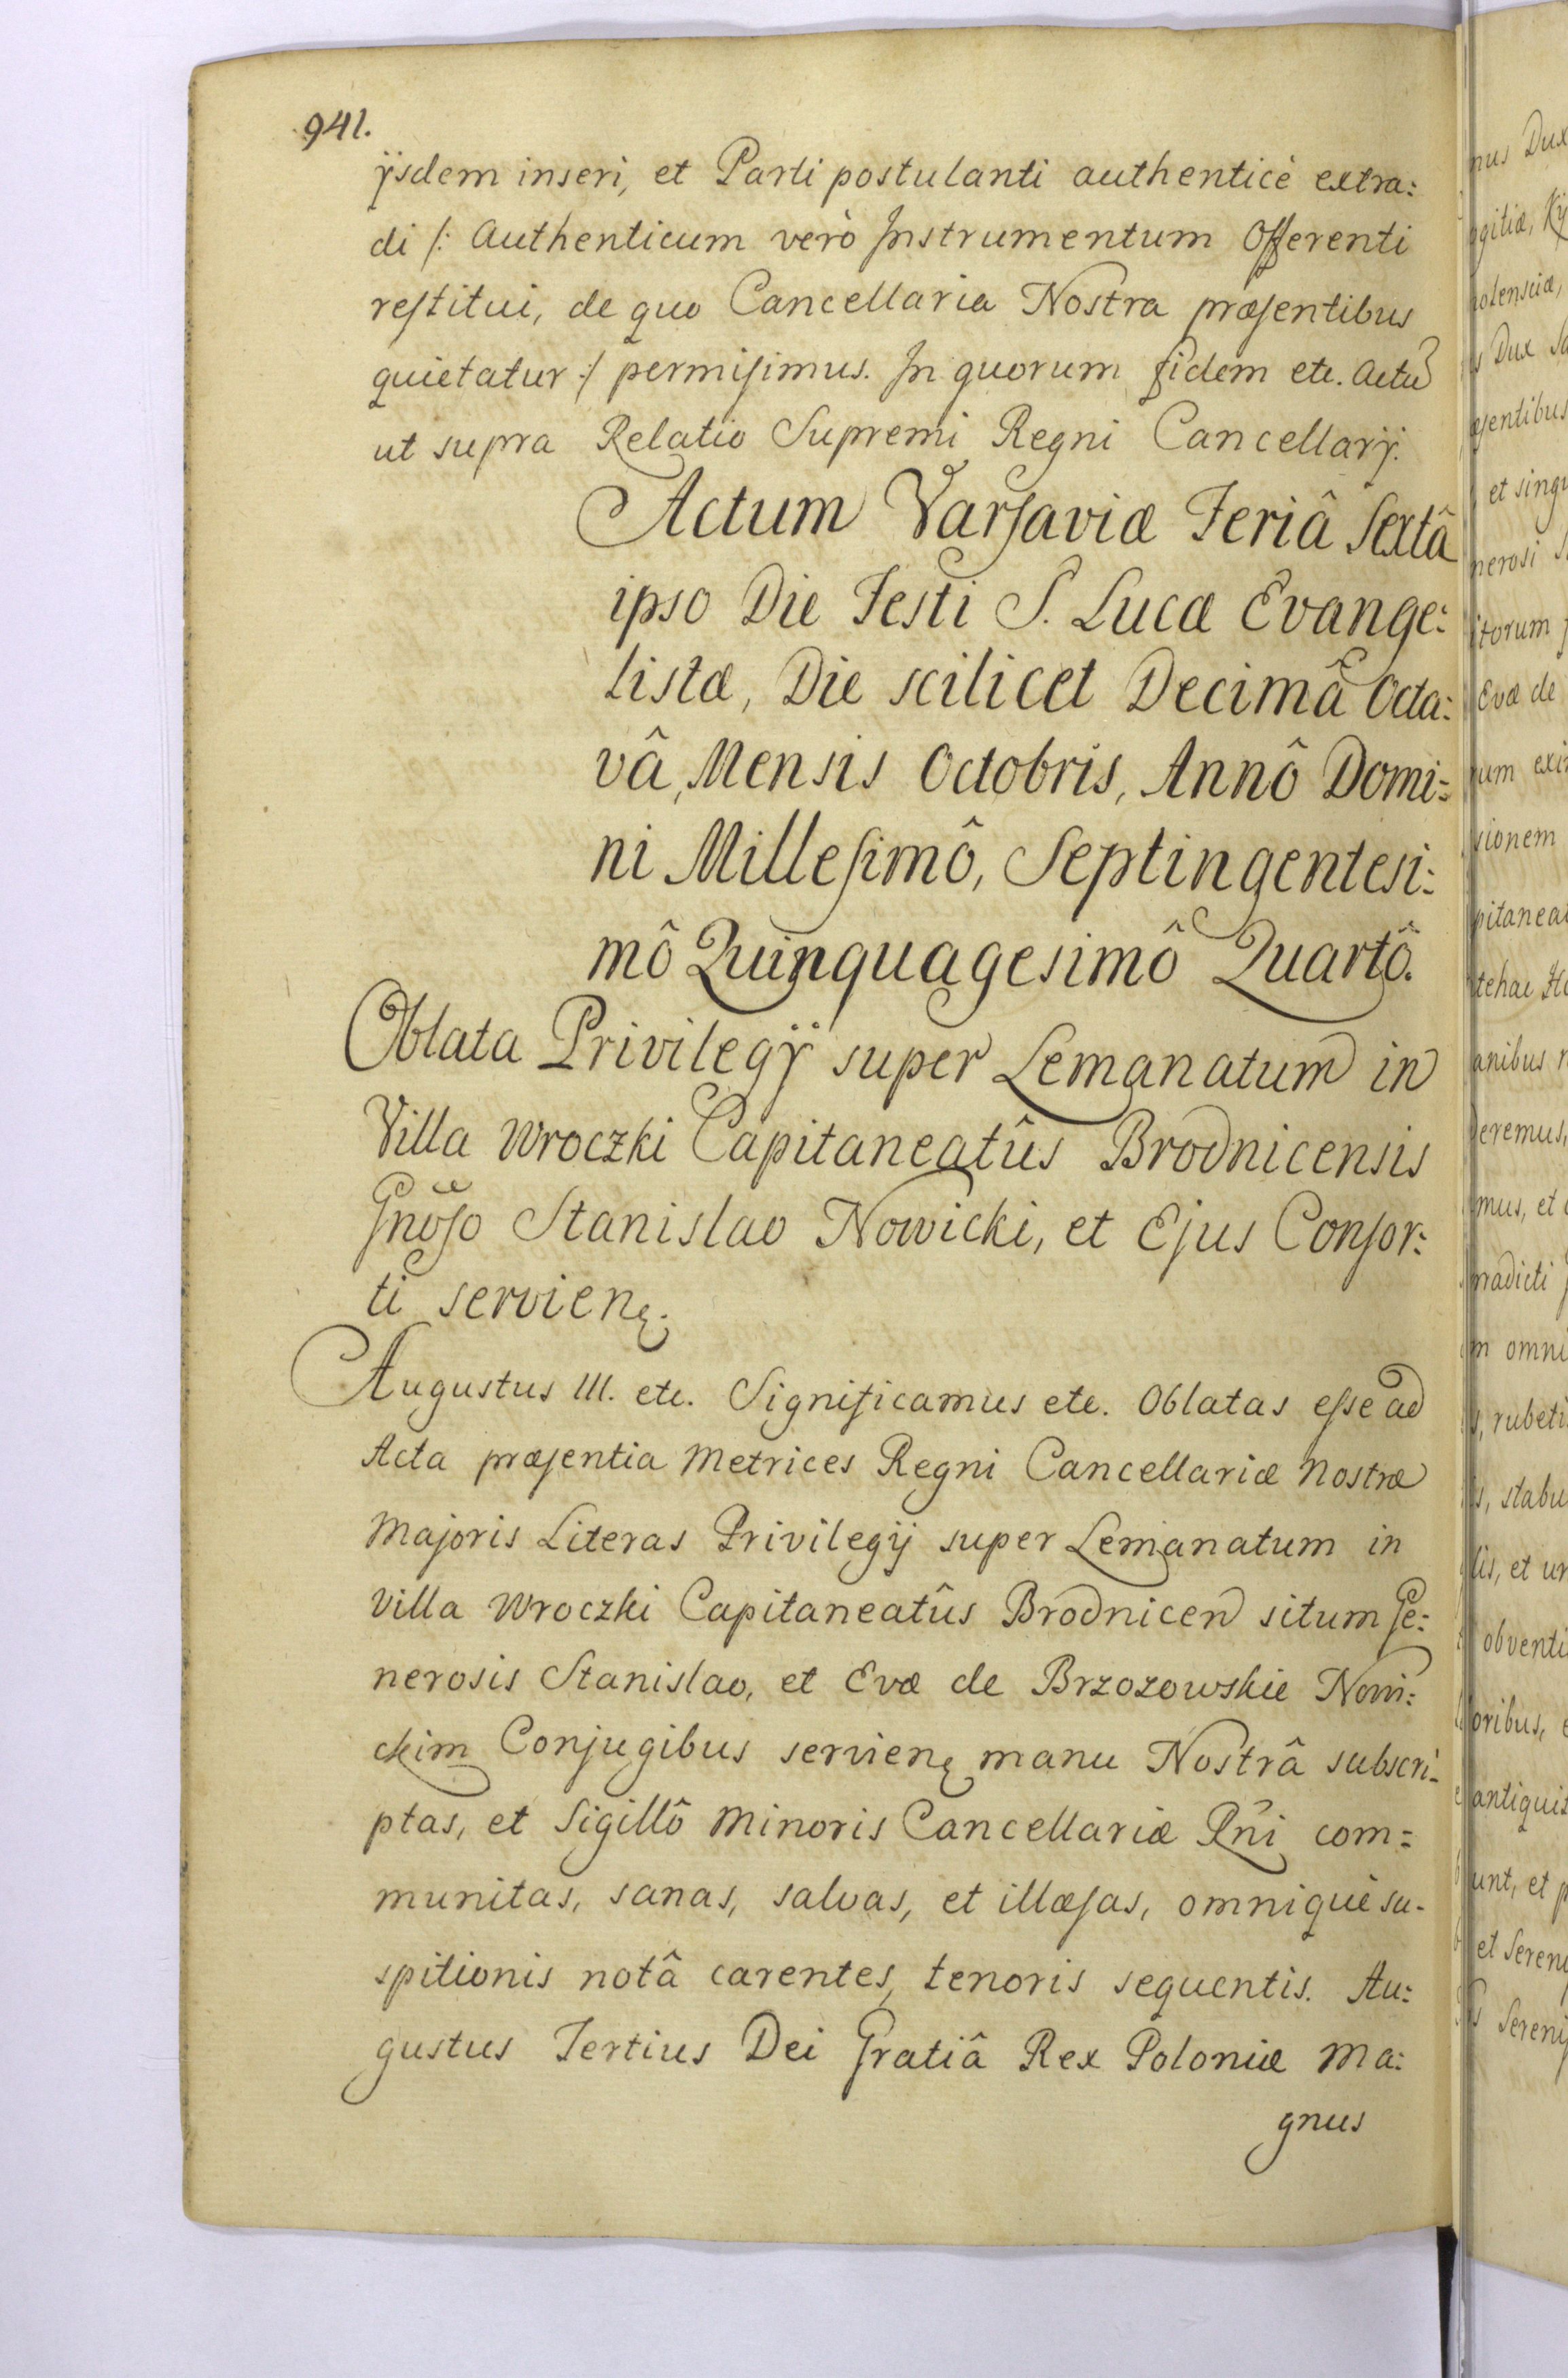 941.
ÿsdem inseri, et Parti postulanti authenticè extra:
di /: Authenticum verò Instrumentum Offerenti
reſtitui, de quo Cancellaria Nostra præſentibus
quietatur :/ permiſimus. In quorum fidem etc. Actũ
ut supra Relatio Supremi Regni Cancellarÿ.
Actum Varſaviæ Feriâ Sextâ
ipso Die Festi S. Lucæ Evange:
listæ, Die scilicet Decimâ Octa:
vâ, Mensis Octobris, Annô Domi:
ni Milleſimô, Septingentesi:
mô Quinquagesimô Quartô.
Oblata Privilegÿ super Lemanatum in
Villa Wroczki Capitaneatûs Brodnicensis
Gnõſo Stanislao Nowicki, et Ejus Conſor:
ti servienę.
Augustus III. etc. Significamus etc. Oblatas eſse ad
Acta præſentia Metrices Regni Cancellariæ Nostræ
Majoris Literas Privilegij super Lemanatum in
Villa Wroczki Capitaneatûs Brodnicen situm Ge:
nerosis Stanislao, et Evæ de Brzozowskie Nowi:
ckim Conjugibus servienę manu Nostrâ subscri-
ptas, et Sigillô Minoris Cancellariæ Rñi com=
munitas, sanas, salvas, et illæſas, omniquè su-
spitionis notâ carentes, tenoris sequentis. Au:
gustus Tertius Dei Gratiâ Rex Poloniæ Ma:
gnus
nus Dux
et singu
itorum
Evæ de
sionem
anibus
deremus,
mus, et
omni
rubeti
, et ur
obventi
oribus,
unt, et
et Seren